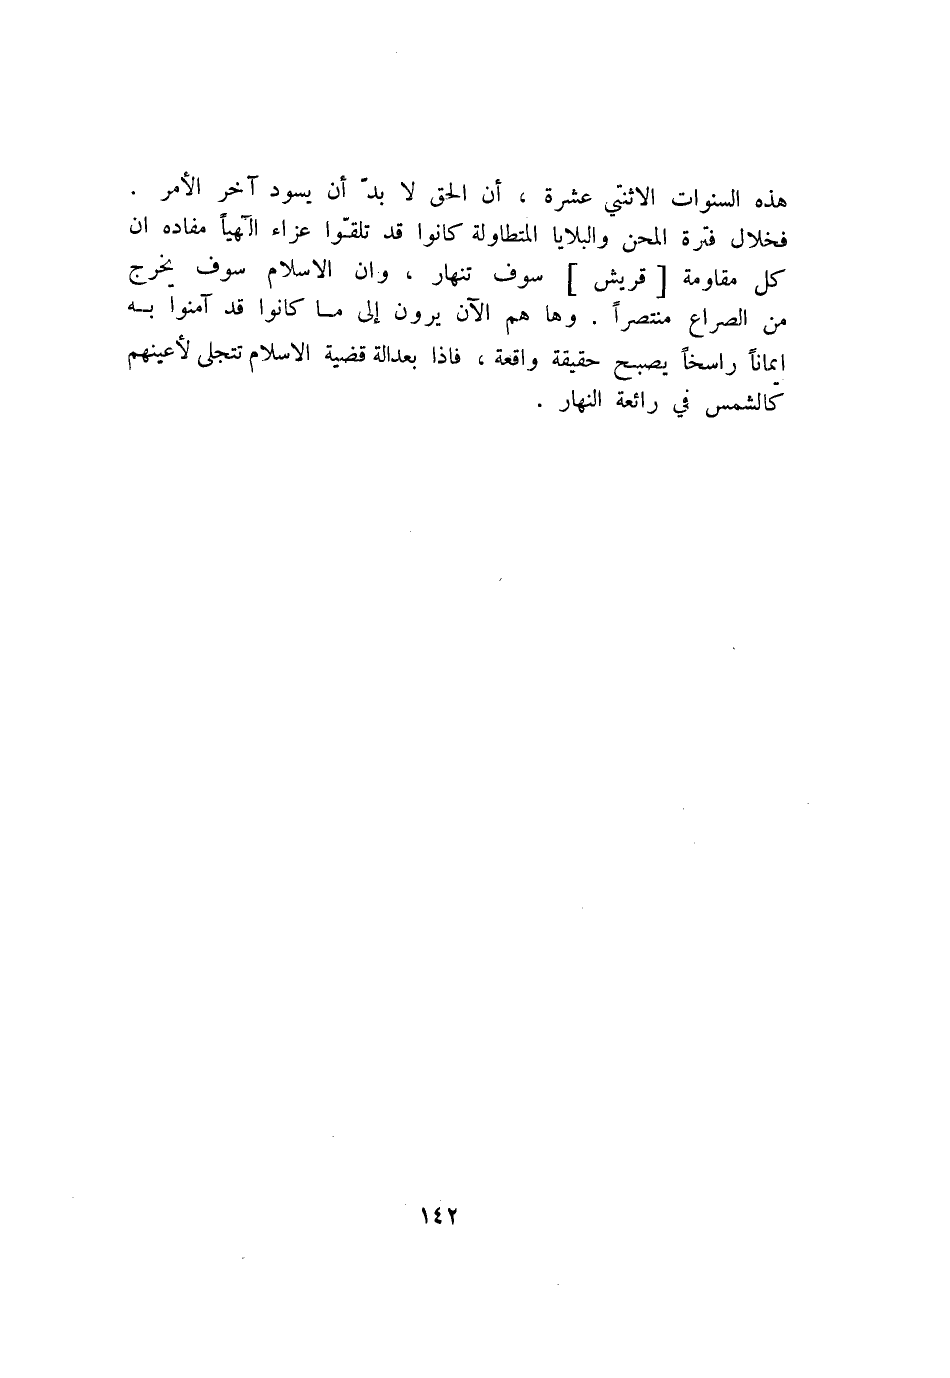 هذه السنوات الاثنتي عشرة ، أن الحق لا بدّ أن يسود آخر الأمر .
فخلال فترة المحن والبلايا المتطاولة كانوا قد تلقّوا عزاء الٓهياً مفاده ان
كل مقاومة [ قريش ] سوف تنهار ، وان الاسلام سوف يخرج
من الصراع منتصراً . وها هم الآن يرون إلى مـا كانوا قد آمنوا بـه
ايماناً راسخاً يصبـح حقيقة واقعة ، فاذا بعدالة قضية الاسلام تتجلى لأعينهم
كالشمس في رائعة النهار .
١٤٢